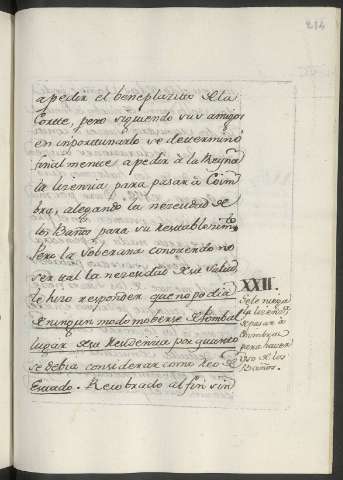 214
a pedir el beneplazito de la
Corte, pero siguiendo sus amigos
en inportunarlo se determinò
finalmente a pedir à la Reyna
la lizenzia para pasar à Coim
bra, alegando la nezesidad de
los Baños para su Restablenim.to
Pero la Soberana conoziendo no
ser tal la nezesidad de su Salud,
le hizo responder que no podia
de ningun modo moberse de Pombal
lugar de su Residenzia por quanto
se debia considerar como Reo de
Estado. Recobrado al fin sin
XXII.
Se le niega
la lizenz.a
de pasar à
Coimbra
para hazer
uso de los
Baños.